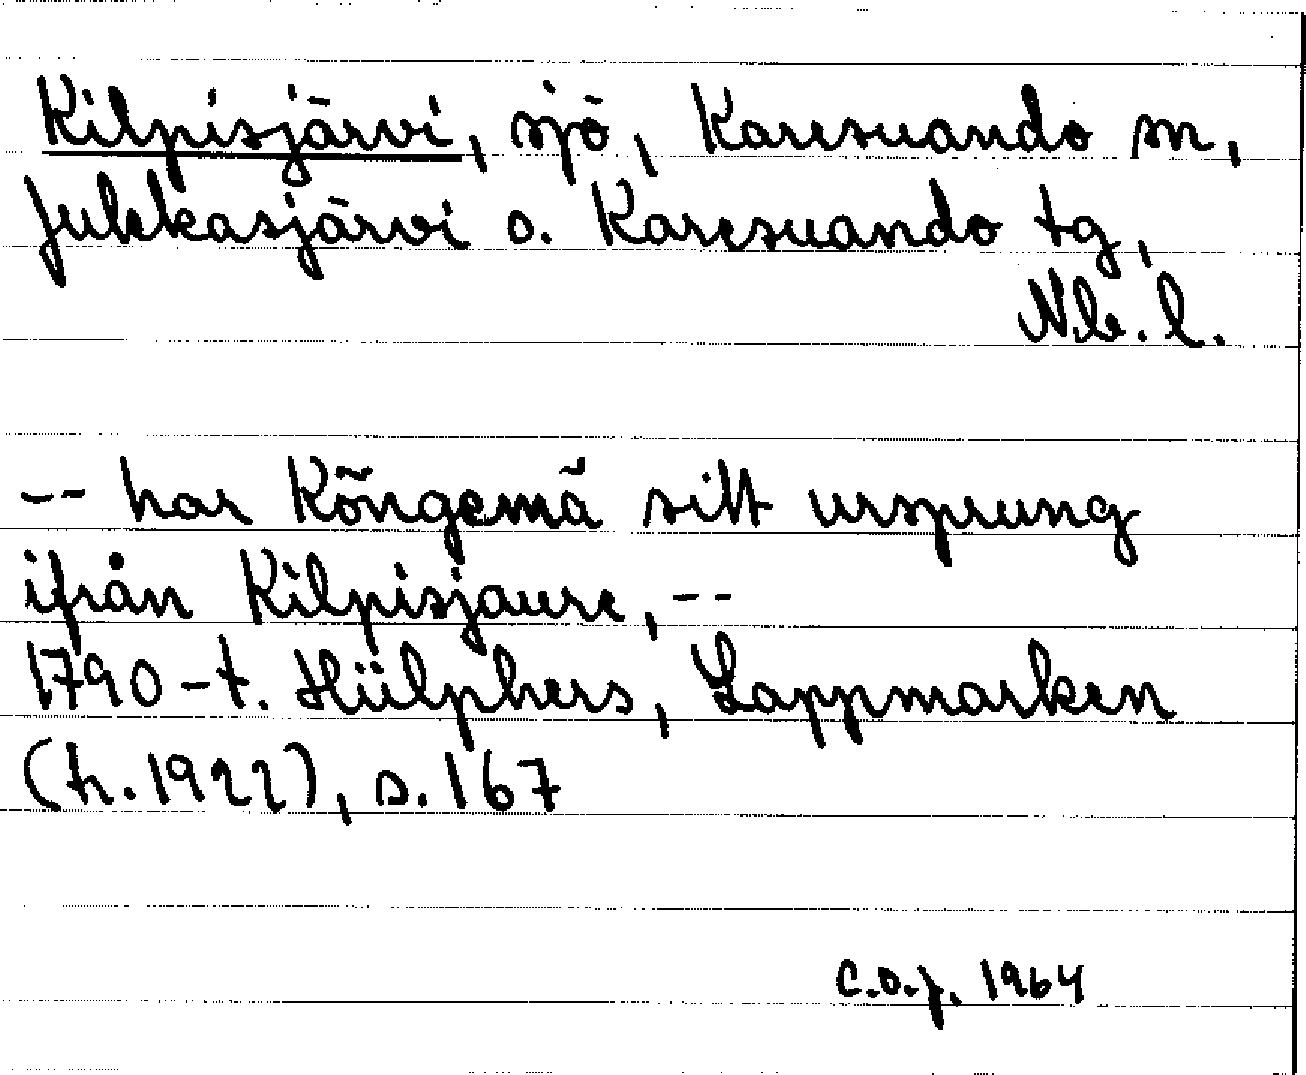 Kilpisjärvi, sjö, Karesuando sn,
Jukkasjärvi o. Karesuando tg,
Nb. l.
-- har Köngemä sitt ursprung
ifrån Kilpisjaure, --
1790-t. Hülphers, Lappmarken
(h. 1922), s. 167
C.O.J. 1964